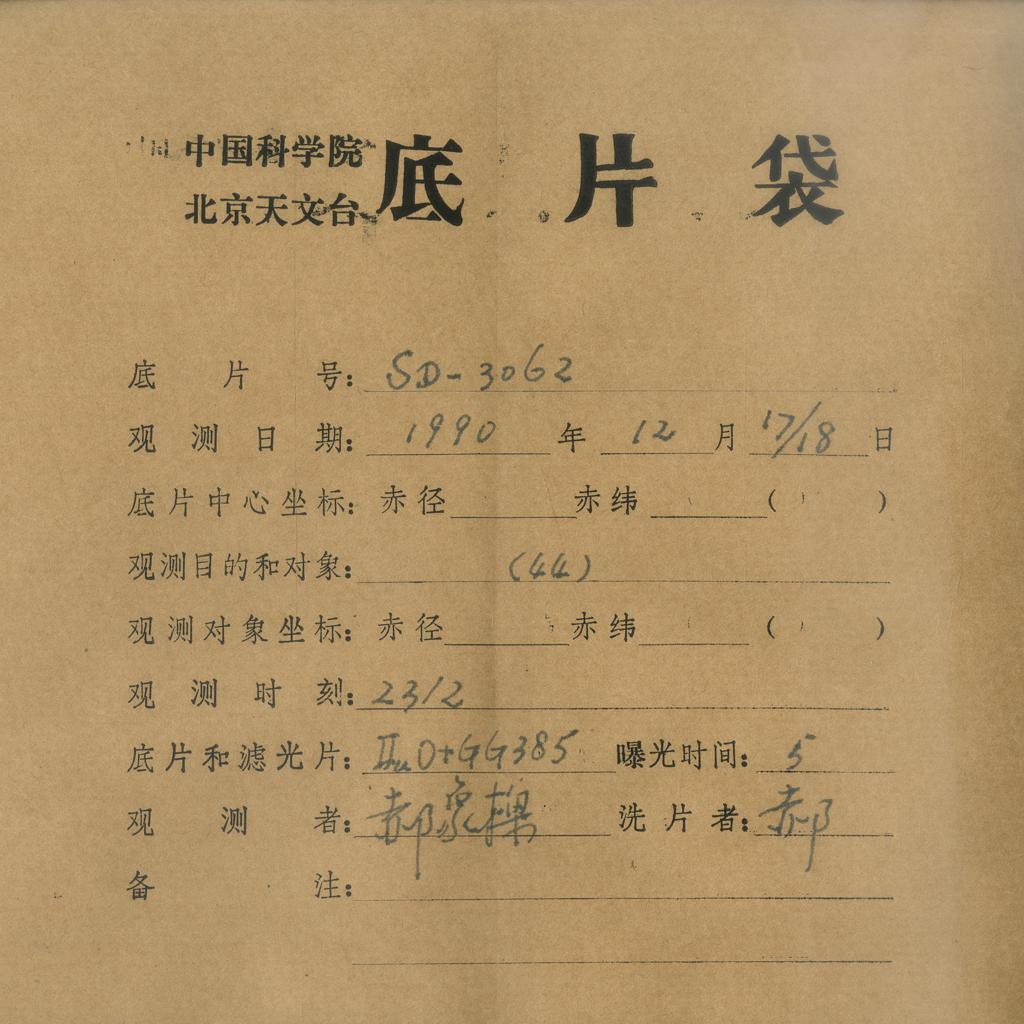 中国科学院
北京天文台 底片袋
底片号: SD-3062
观测日期: 1990 年 12 月 17/18 日
底片中心坐标: 赤径 赤纬 ( )
观测目的和对象: (44)
观测对象坐标: 赤径 赤纬 ( )
观测时刻: 2312
底片和滤光片: IIaO+GG385 曝光时间: 5
观测者: 郝象樑 洗片者: 郝
备注: